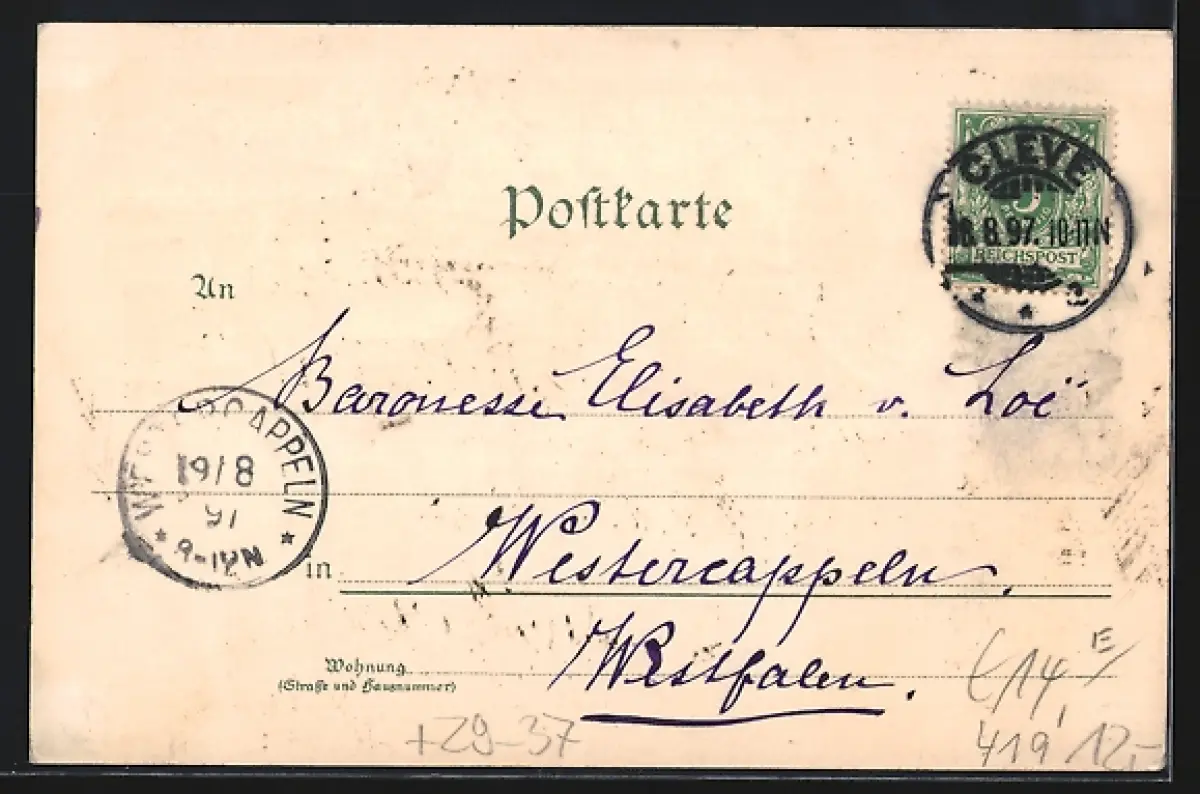 Postkarte
CLEVE
18.8.97. 10-11N
REICHSPOST
2
An
Baronesse Elisabeth v. Loë
WESTERCAPPELN
19/8
97
in
Westercappeln,
Westfalen.
Wohnung
(Straße und Hausnummer)
E
14,
+29-37
419 12,-